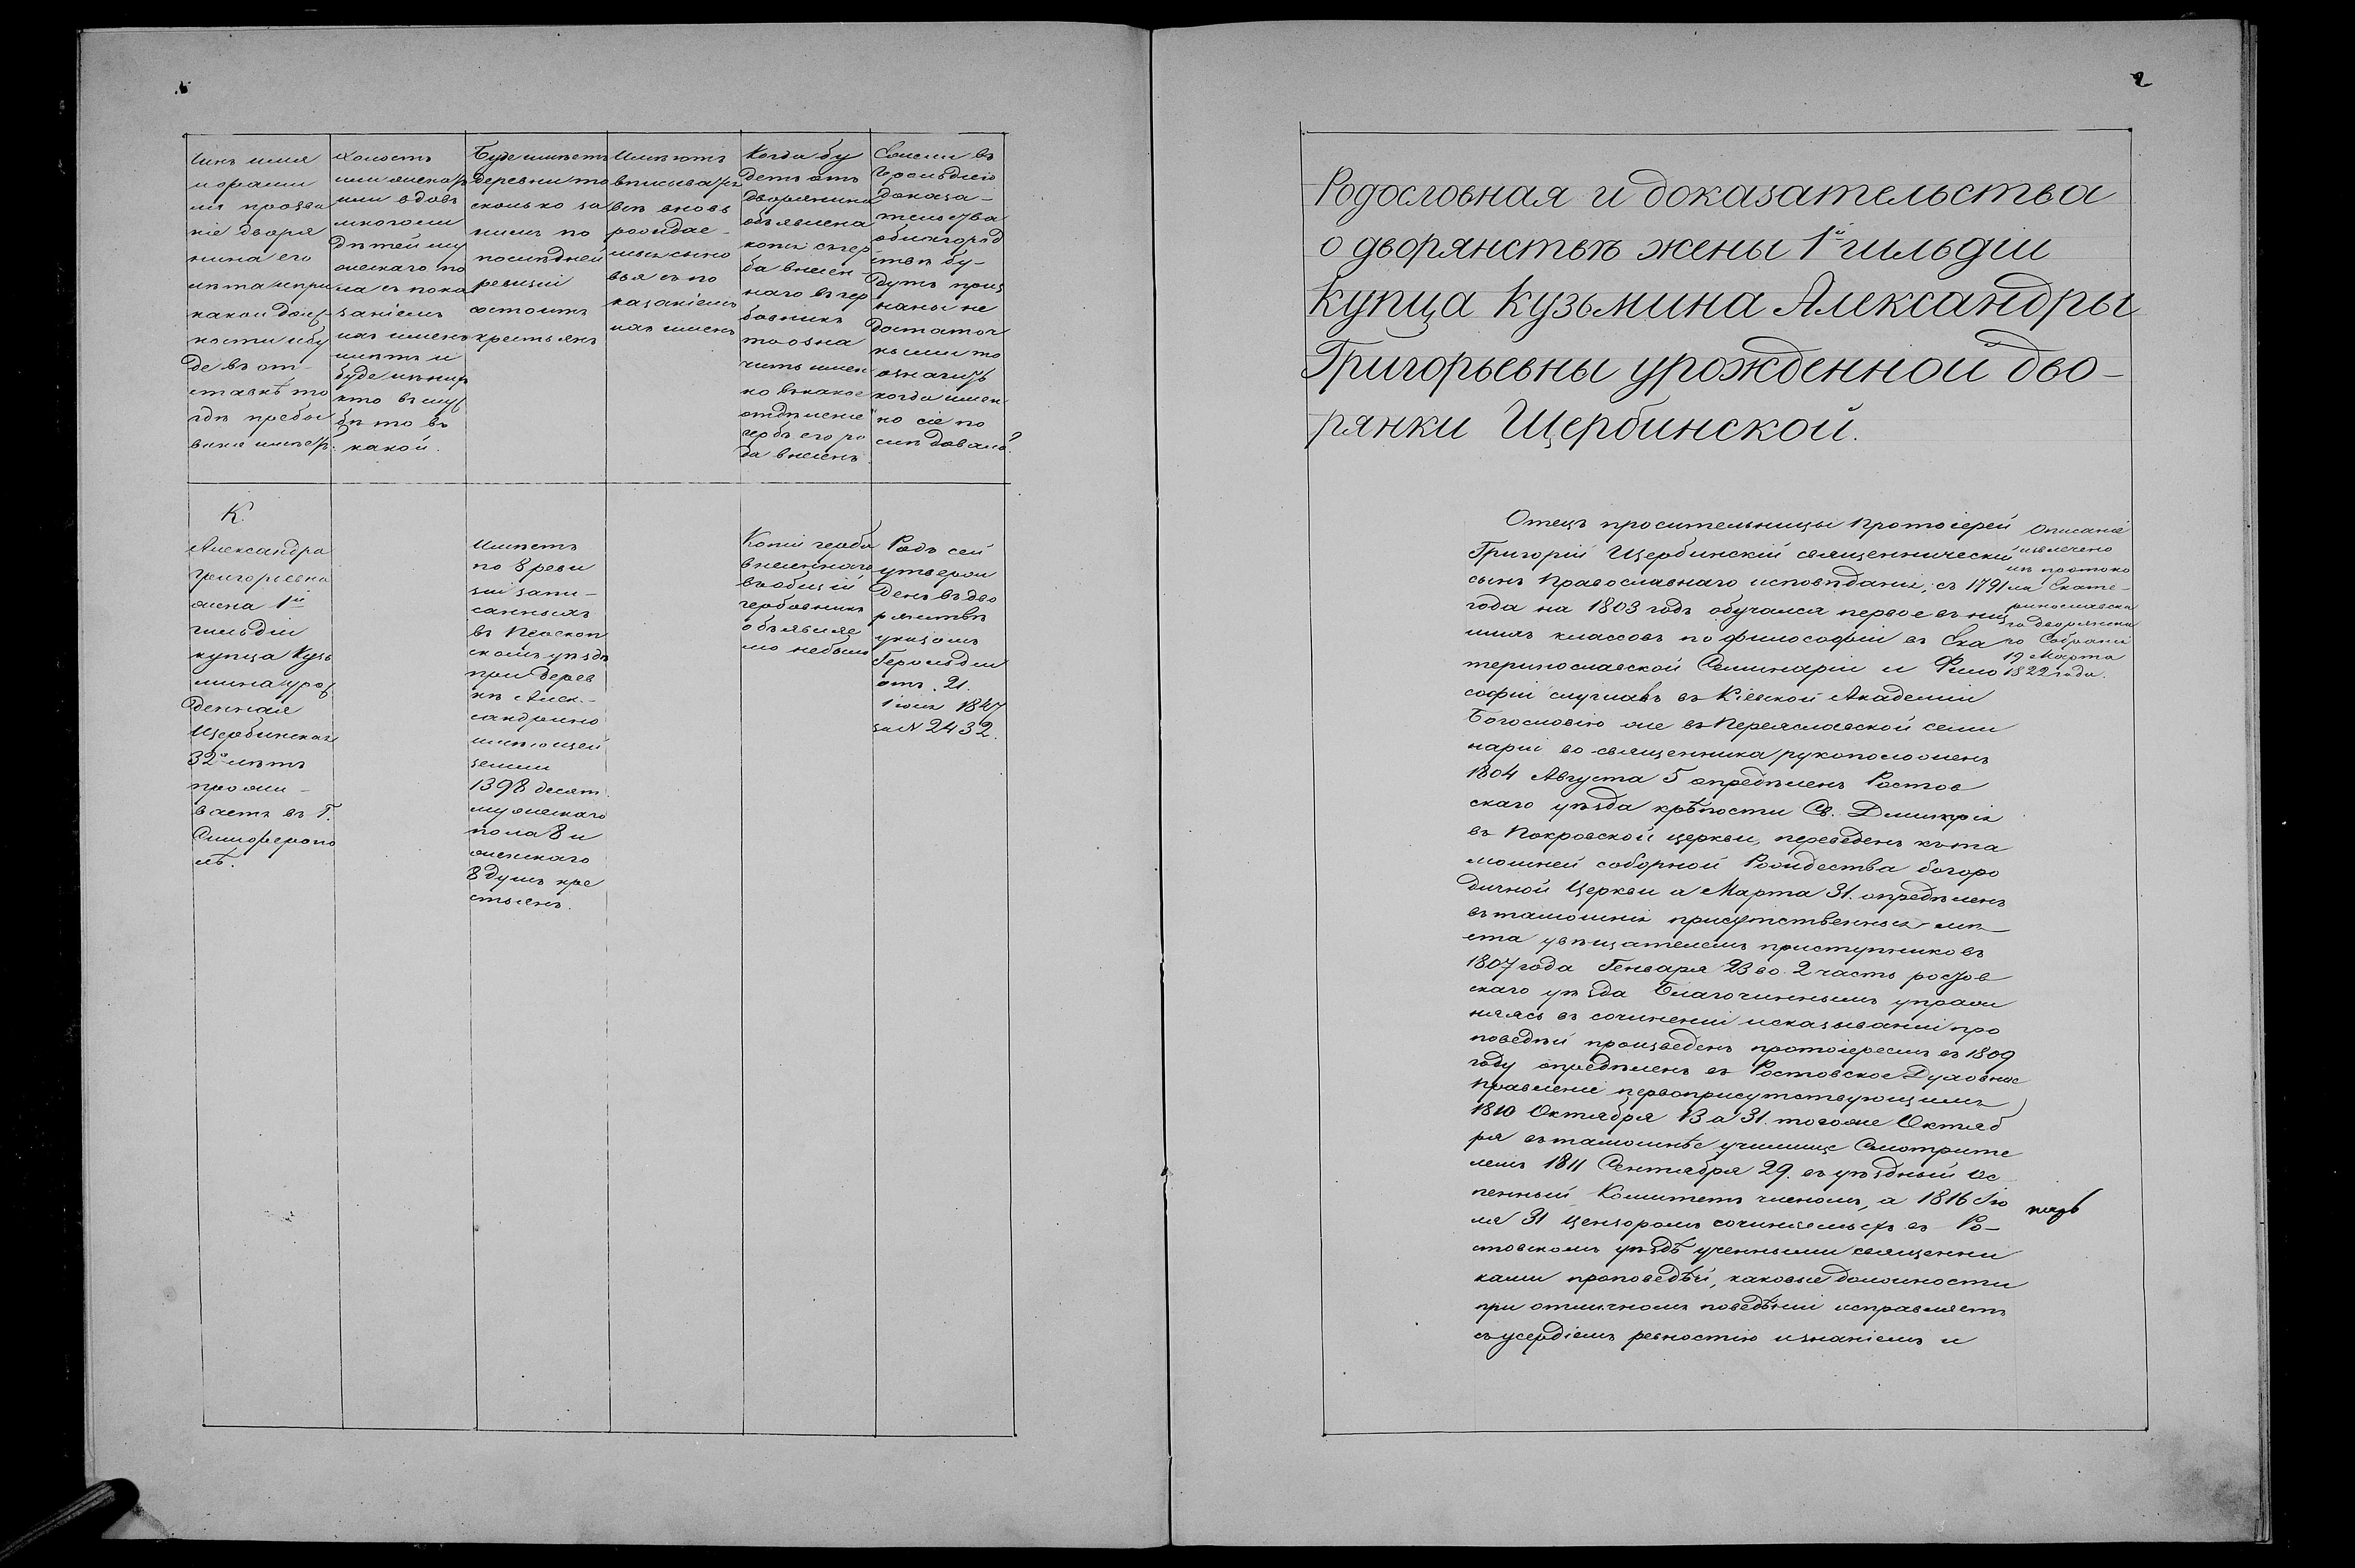 Чинъ имя
и фами
лія прозва
ніе дворя
нина его
лѣта и при
какой долж
ности и бу
де въ от-
ставкѣ то
гдѣ пребы
ваніе имѣетъ.
Холостъ
или женатъ
или вдовъ
много ли
дѣтей му
жескаго по
ла съ пока
заніемъ
ихъ именъ
лѣтъ и
буде изъ нихъ
кто въ служ
бѣ то въ
какой.
Буде имѣетъ
деревни то
сколько за
нимъ по
последней
ревизіи
состоитъ
крестьянъ
Имѣютъ
вписывать
всѣ вновь
рождае-
мыя сыно
вья съ по
казаніемъ
ихъ именъ
Когда бу
детъ отъ
дворянина
объявлена
копія съ гер
ба внесен-
наго въ гер
бовникъ
то озна
чить имен
но въ какое
отдѣленіе
гербъ его ро
да внесенъ.
Есьли въ
Герольдіею
доказа-
тельства
о благород
ствѣ бу-
дутъ приз
наны не
достаточ
ными то
означить
когда имен
но сіе по
слѣдовало?
К.
Александра
Григорьевна
жена 1й
гильдіи
купца Кузь
мина урож
денная
Щербинская
32 лѣтъ
прожи-
ваетъ въ Г.
Симферопо
лѣ.
Имѣетъ
по 8 реви
зіи запи-
санныхъ
въ Перекоп
скомъ уѣздѣ
при дерев
нѣ Алек-
сандрино
имѣющей
земли
1398 десят.
мужескаго
пола 8 и
женскаго
8 душъ кре
стьянъ.
Копіи герба
внесеннаго
въ общій
гербовникъ
объявляе
мо небыло
Родъ сей
утверж
денъ въ дво
рянствѣ
указомъ
Герольдіи
отъ 21.
Іюля 1847
за № 2432.
2
Родословная и доказательства
о дворянствѣ жены 1й гильдіи
Купца Кузьмина Александры
Григорьевны урожденной дво-
рянки Щербинской.
Отецъ просительницы Протоіерей
Григорій Щербинскій священническій
сынъ Православнаго исповѣданія, съ 1791
года на 1803 годъ обучался первое въ низ
шихъ классовъ по философіи въ Ека
теринославской Семинаріи и Фило
софіи слушавъ въ Кіевской Академіи
Богословію же въ Переяславской семи
наріи во священника рукоположенъ
1804 Августа 5 опредѣленъ Ростов
скаго уѣзда крѣпости Св. Димитрія
въ Покровской церкви, переведенъ къ та
мошней соборной Рождества богоро
дичной Церкви а Марта 31. опредѣленъ
въ тамошнія присутственныя мѣ
ста увѣщателемъ приступниковъ
1807 года Генваря 23 во 2 часть ростов
скаго уѣзда Благочиннымъ упраж
няясь въ сочиненіи и сказываніи про
поведѣй произведенъ протоіереемъ въ 1809
году опредѣленъ въ Ростовское Духовное
Правленіе первоприсутствующимъ
1810 Октября 13 а 31. того же Октяб
ря въ тамошнѣе училище Смотрите
лемъ 1811 Сентября 29. въ уѣздный Ос
пенный Комитетъ членомъ, а 1816 Ію
ля 31 Цензоромъ сочиняемыхъ въ Ро-
стовскомъ уѣздѣ ученными священни
ками проповедѣй, каковые должности
при отличномъ поведѣніи исправляетъ
съ усердіемъ ревностію и знаніемъ и
Описаніе
извлечено
изъ протоко
ла Екате-
ринославска
го дворянска
го Собранія
19 Марта
1822 года.